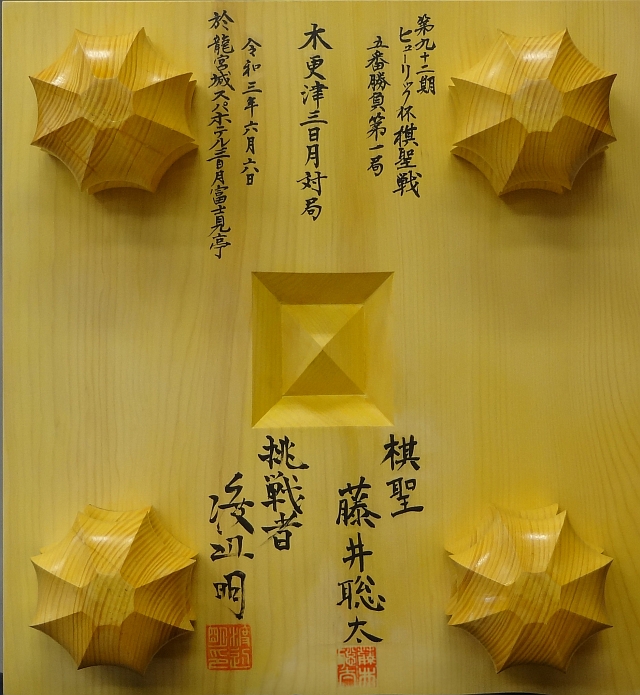 第九十二期
ヒューリック杯棋聖戦
五番勝負第一局
木更津三日月対局
令和三年六月六日
於龍宮城スパホテル三日月富士見亭
棋聖
藤井聡太
挑戦者
渡辺明